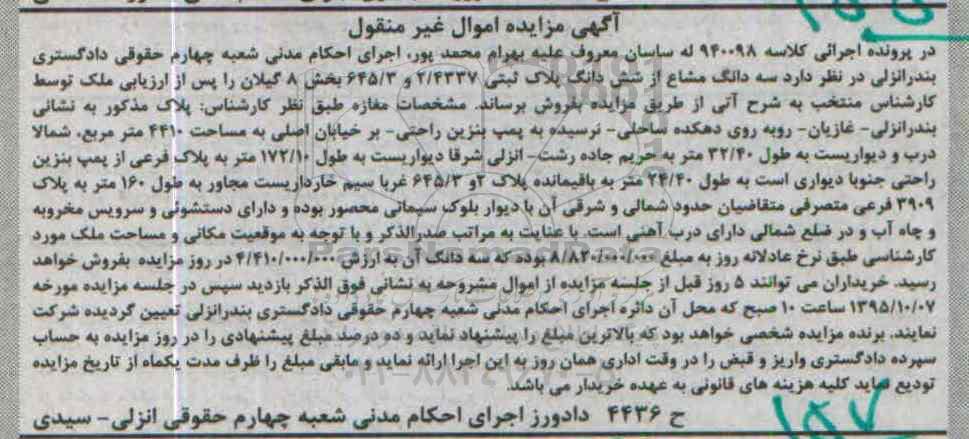 آگهی مزایده اموال غیر منقول
در پرونده اجرائی کلاسه ۹۴۰۰۹۸ له ساسان معروف علیه بهرام محمد پور، اجرای احکام مدنی شعبه چهارم حقوقی دادگستری
بندرانزلی در نظر دارد سه دانگ مشاع از شش دانگ پلاک ثبتی ۲/۴۳۳۷ و ۶۴۵/۳ بخش ۸ گیلان را پس از ارزیابی ملک توسط
کارشناس منتخب به شرح آتی از طریق مزایده بفروش برساند. مشخصات مغازه طبق نظر کارشناس: پلاک مذکور به نشانی
بندرانزلی- غازیان- روبه روی دهکده ساحلی- نرسیده به پمپ بنزین راحتی- بر خیابان اصلی به مساحت ۴۴۱۰ متر مربع، شمالا
درب و دیواریست به طول ۳۲/۴۰ متر به حریم جاده رشت- انزلی شرقا دیواریست به طول ۱۷۲/۱۰ متر به پلاک فرعی از پمپ بنزین
راحتی جنوبا دیواری است به طول ۲۴/۴۰ متر به باقیمانده پلاک ۲و ۶۴۵/۳ غربا سیم خارداریست مجاور به طول ۱۶۰ متر به پلاک
۳۹۰۹ فرعی متصرفی متقاضیان حدود شمالی و شرقی آن با دیوار بلوک سیمانی محصور بوده و دارای دستشوئی و سرویس مخروبه
و چاه آب و در ضلع شمالی دارای درب آهنی است. با عنایت به مراتب صدرالذکر و با توجه به موقعیت مکانی و مساحت ملک مورد
کارشناسی طبق نرخ عادلانه روز به مبلغ ۸/۸۲۰/۰۰۰/۰۰۰ بوده که سه دانگ آن به ارزش ۴/۴۱۰/۰۰۰/۰۰۰ در روز مزایده بفروش خواهد
رسید. خریداران می توانند ۵ روز قبل از جلسه مزایده از اموال مشروحه به نشانی فوق الذکر بازدید سپس در جلسه مزایده مورخه
۱۳۹۵/۱۰/۰۷ ساعت ۱۰ صبح که محل آن دائره اجرای احکام مدنی شعبه چهارم حقوقی دادگستری بندرانزلی تعیین گردیده شرکت
نمایند. برنده مزایده شخصی خواهد بود که بالاترین مبلغ را پیشنهاد نماید و ده درصد مبلغ پیشنهادی را در روز مزایده به حساب
سپرده دادگستری واریز و قبض را در وقت اداری همان روز به این اجرا ارائه نماید و مابقی مبلغ را ظرف مدت یکماه از تاریخ مزایده
تودیع نماید کلیه هزینه های قانونی به عهده خریدار می باشد.
ح ۴۴۳۶ دادورز اجرای احکام مدنی شعبه چهارم حقوقی انزلی- سیدی
۱۵۷